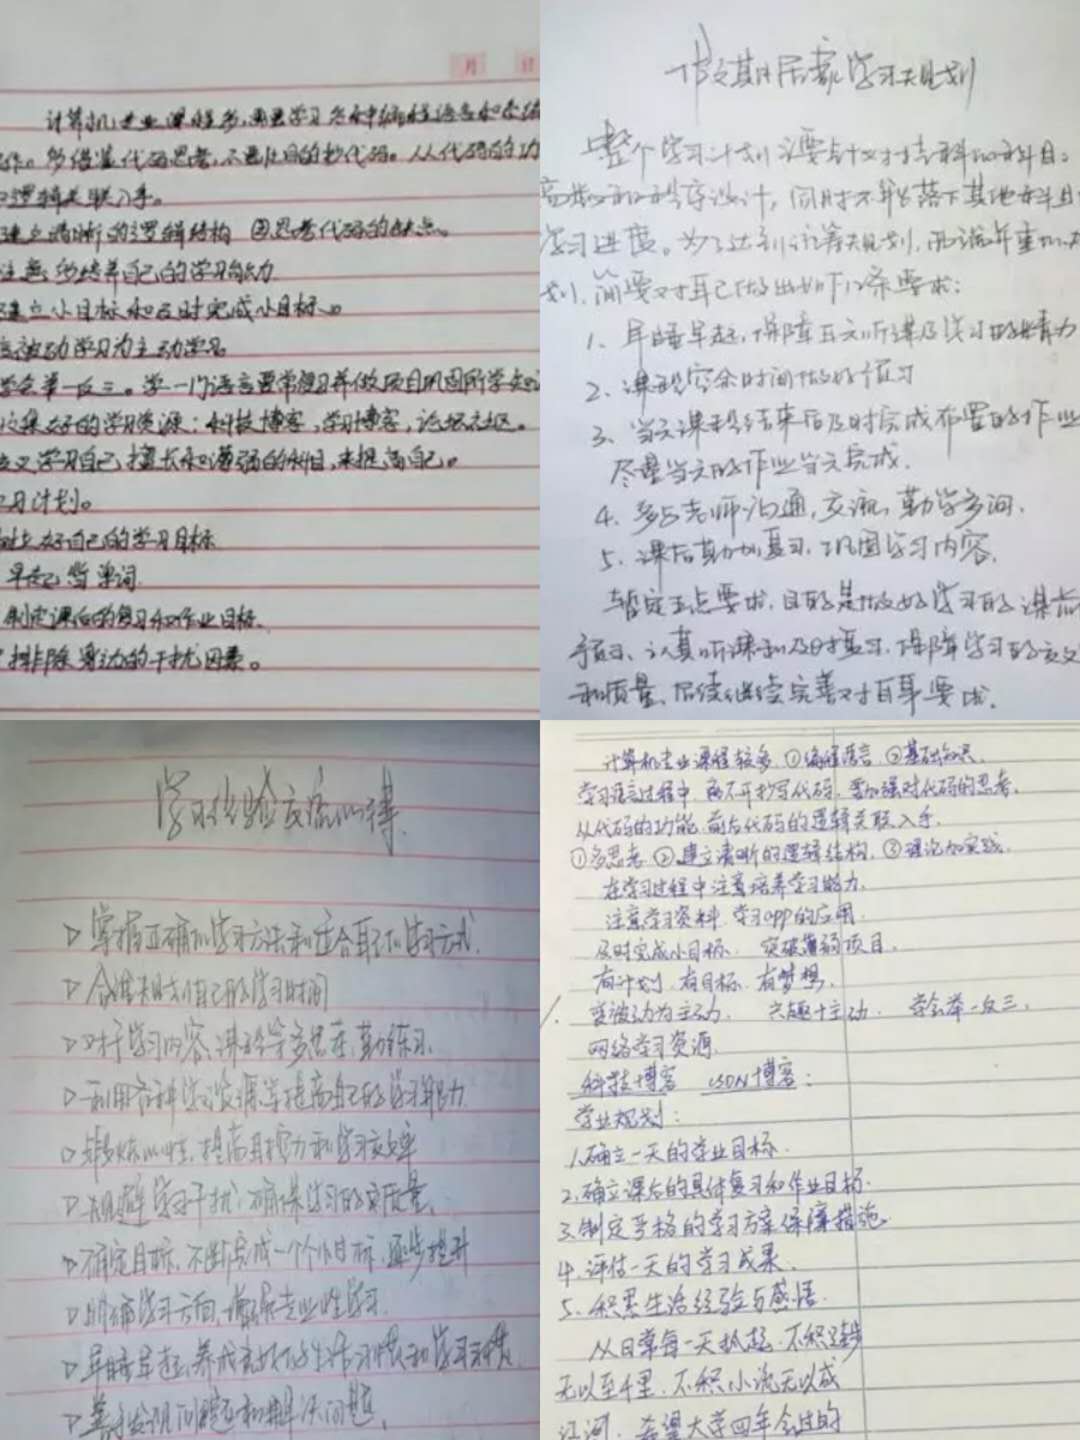 月 日
计算机专业课程多,需要学习多种编程语言和
作。多借鉴代码思考,不要盲目的抄代码。从代码的功
逻辑关联入手。
建立清晰的逻辑结构 ②思考代码的缺点。
注意多培养自己的学习能力
建立小目标和及时完成小目标。
变被动学习为主动学习
学会举一反三。学一门语言要常复习并做项目巩固所学
收集好的学习资源:科技博客,学习博客,论坛社区。
学习自己擅长和薄弱的科目,来提高自己。
习计划。
好自己的学习目标
早起背单词
制定课后的复习和作业目标
排除身边的干扰因素。
假期居家学习规划
整个学习计划主要针对本科的科目:
高数和程序设计,同时不能落下其他科目
学习进度。为了达到计算规划,
划,简要对自己做出如下几条要求:
1、早睡早起,保障五天听课及学习的精力
2、课程空余时间做好预习
3、当天课程结束后及时完成布置的作业
尽量当天的作业当天完成.
4、多与老师沟通,交流,勤学多问.
5、课后勤加复习,巩固学习内容.
暂定五点要求,目的是做好学习的课前
预习、认真听课和及时复习,保障学习的效
和质量,后续继续完善对自身要求.
学习经验交流心得
掌握正确的学习方法和适合自己的学习方式.
合理规划自己的学习时间
对于学习内容,课程等多思考,勤练习.
利用各种学习资源等提高自己的学习能力
锻炼心性,提高自控力和学习效率
规避学习干扰,确保学习的高质量.
确定目标,不断完成一个个小目标,逐步提升
明确学习方向,偏向专业性学习.
早睡早起,养成良好的生活习惯和学习习惯.
善于发现问题和解决问题.
计算机专业课程较多,①编程语言 ②基础知识.
学习语言过程中,离不开抄写代码,要加强对代码的思考.
从代码的功能,前后代码的逻辑关联入手.
①多思考 ②建立清晰的逻辑结构. ③理论加实践.
在学习过程中注意培养学习能力.
注意学习资料,学习app的应用.
及时完成小目标. 突破薄弱项目.
有计划.有目标.有梦想.
变被动为主动. 兴趣+主动. 学会举一反三.
网络学习资源.
科技博客 CSDN博客:
学业规划:
1.确立一天的学业目标.
2.确立课后的具体复习和作业目标.
3.制定严格的学习方案保障措施.
4.评估一天的学习成果.
5.积累生活经验与感悟.
从日常每一天抓起,不积跬步
无以至千里,不积小流无以成
江河.希望大学四年会过的